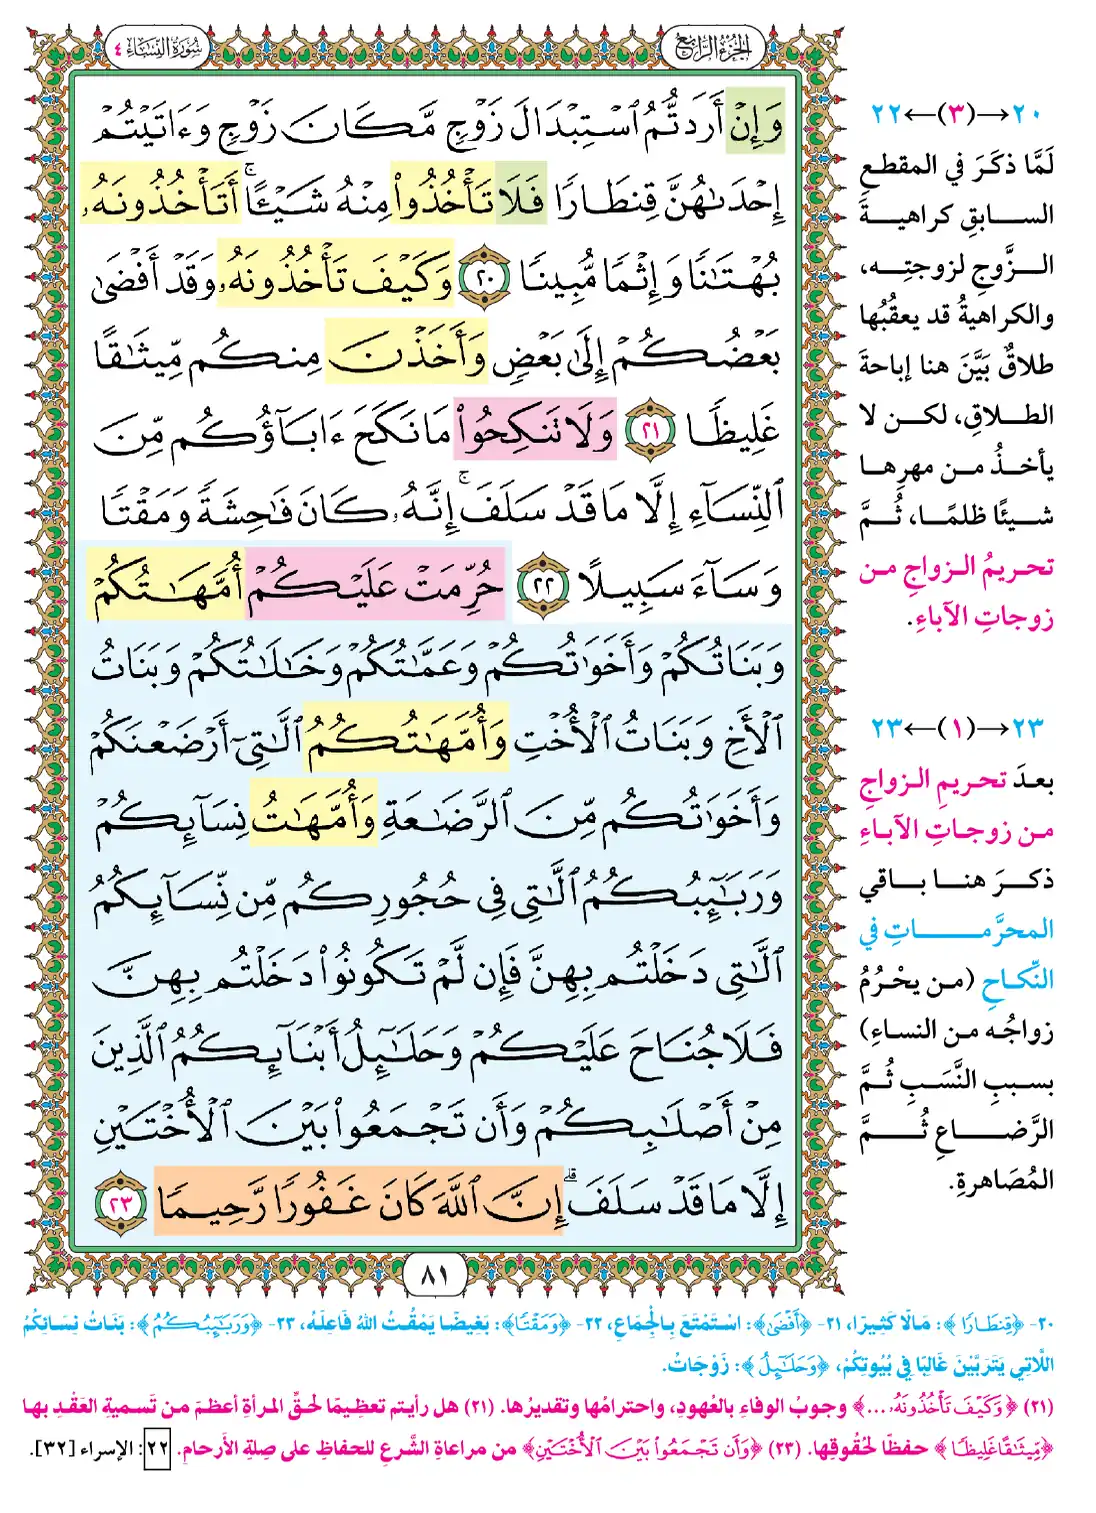 الجزء الرابع
سورة النساء ٤
وَإِنْ أَرَدتُّمُ ٱسْتِبْدَالَ زَوْجٍ مَّكَانَ زَوْجٍ وَءَاتَيْتُمْ
إِحْدَىٰهُنَّ قِنطَارًا فَلَا تَأْخُذُوا۟ مِنْهُ شَيْـًٔا ۚ أَتَأْخُذُونَهُۥ
بُهْتَٰنًا وَإِثْمًا مُّبِينًا ٢٠ وَكَيْفَ تَأْخُذُونَهُۥ وَقَدْ أَفْضَىٰ
بَعْضُكُمْ إِلَىٰ بَعْضٍ وَأَخَذْنَ مِنكُم مِّيثَٰقًا
غَلِيظًا ٢١ وَلَا تَنكِحُوا۟ مَا نَكَحَ ءَابَآؤُكُم مِّنَ
ٱلنِّسَآءِ إِلَّا مَا قَدْ سَلَفَ ۚ إِنَّهُۥ كَانَ فَٰحِشَةً وَمَقْتًا
وَسَآءَ سَبِيلًا ٢٢ حُرِّمَتْ عَلَيْكُمْ أُمَّهَٰتُكُمْ
وَبَنَاتُكُمْ وَأَخَوَٰتُكُمْ وَعَمَّٰتُكُمْ وَخَٰلَٰتُكُمْ وَبَنَاتُ
ٱلْأَخِ وَبَنَاتُ ٱلْأُخْتِ وَأُمَّهَٰتُكُمُ ٱلَّٰتِىٓ أَرْضَعْنَكُمْ
وَأَخَوَٰتُكُم مِّنَ ٱلرَّضَٰعَةِ وَأُمَّهَٰتُ نِسَآئِكُمْ
وَرَبَٰٓئِبُكُمُ ٱلَّٰتِى فِى حُجُورِكُم مِّن نِّسَآئِكُمُ
ٱلَّٰتِى دَخَلْتُم بِهِنَّ فَإِن لَّمْ تَكُونُوا۟ دَخَلْتُم بِهِنَّ
فَلَا جُنَاحَ عَلَيْكُمْ وَحَلَٰٓئِلُ أَبْنَآئِكُمُ ٱلَّذِينَ
مِنْ أَصْلَٰبِكُمْ وَأَن تَجْمَعُوا۟ بَيْنَ ٱلْأُخْتَيْنِ
إِلَّا مَا قَدْ سَلَفَ ۗ إِنَّ ٱللَّهَ كَانَ غَفُورًا رَّحِيمًا ٢٣
٨١
٢٠→(٣)←٢٢
لَمَّا ذكَرَ في المقطعِ
السابقِ كراهيةَ
الزَّوجِ لزوجتِه،
والكراهيةُ قد يعقُبُها
طلاقٌ بَيَّنَ هنا إباحةَ
الطلاقِ، لكن لا
يأخذُ من مهرِها
شيئًا ظلمًا، ثُمَّ
تحريمُ الزواجِ من
زوجاتِ الآباءِ.
٢٣→(١)←٢٣
بعدَ تحريمِ الزواجِ
من زوجاتِ الآباءِ
ذكرَ هنا باقي
المحرَّماتِ في
النِّكاحِ (من يحْرُمُ
زواجُه من النساءِ)
بسببِ النَّسَبِ ثُمَّ
الرَّضاعِ ثُمَّ
المُصَاهرةِ.
٢٠- ﴿قِنطَارًا﴾: مَالًا كَثِيرًا، ٢١- ﴿أَفْضَىٰ﴾: اسْتَمْتَعَ بِالْجِمَاعِ، ٢٢- ﴿وَمَقْتًا﴾: بَغِيضًا يَمْقُتُ اللهُ فَاعِلَهُ، ٢٣- ﴿وَرَبَٰٓئِبُكُمُ﴾: بَنَاتُ نِسَائِكُمُ
اللَّاتِي يَتَرَبَّيْنَ غَالِبًا فِي بُيُوتِكُمْ، ﴿وَحَلَٰٓئِلُ﴾: زَوْجَاتُ.
(٢١) ﴿وَكَيْفَ تَأْخُذُونَهُۥ ...﴾ وجوبُ الوفاءِ بالعُهودِ، واحترامُها وتقديرُها. (٢١) هل رأيتم تعظيمًا لحقِّ المرأةِ أعظمَ من تَسميةِ العَقْدِ بها
﴿مِّيثَٰقًا غَلِيظًا﴾ حفظًا لحُقُوقِها. (٢٣) ﴿وَأَن تَجْمَعُوا۟ بَيْنَ ٱلْأُخْتَيْنِ﴾ من مراعاةِ الشَّرعِ للحفاظِ على صِلةِ الأرحامِ. ٢٢: الإسراء [٣٢].